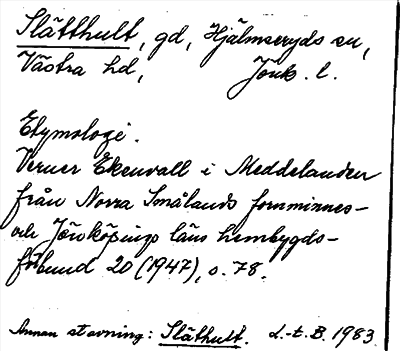 Slätthult, gd, Hjälmseryds sn,
Västra hd, Jönk. l.
Etymologi.
Verner Ekenvall i Meddelanden
från Norra Smålands fornminnes-
och Jönköpings läns hembygds-
förbund 20 (1947), s. 78.
Annan stavning: Släthult. L.-t. B. 1983